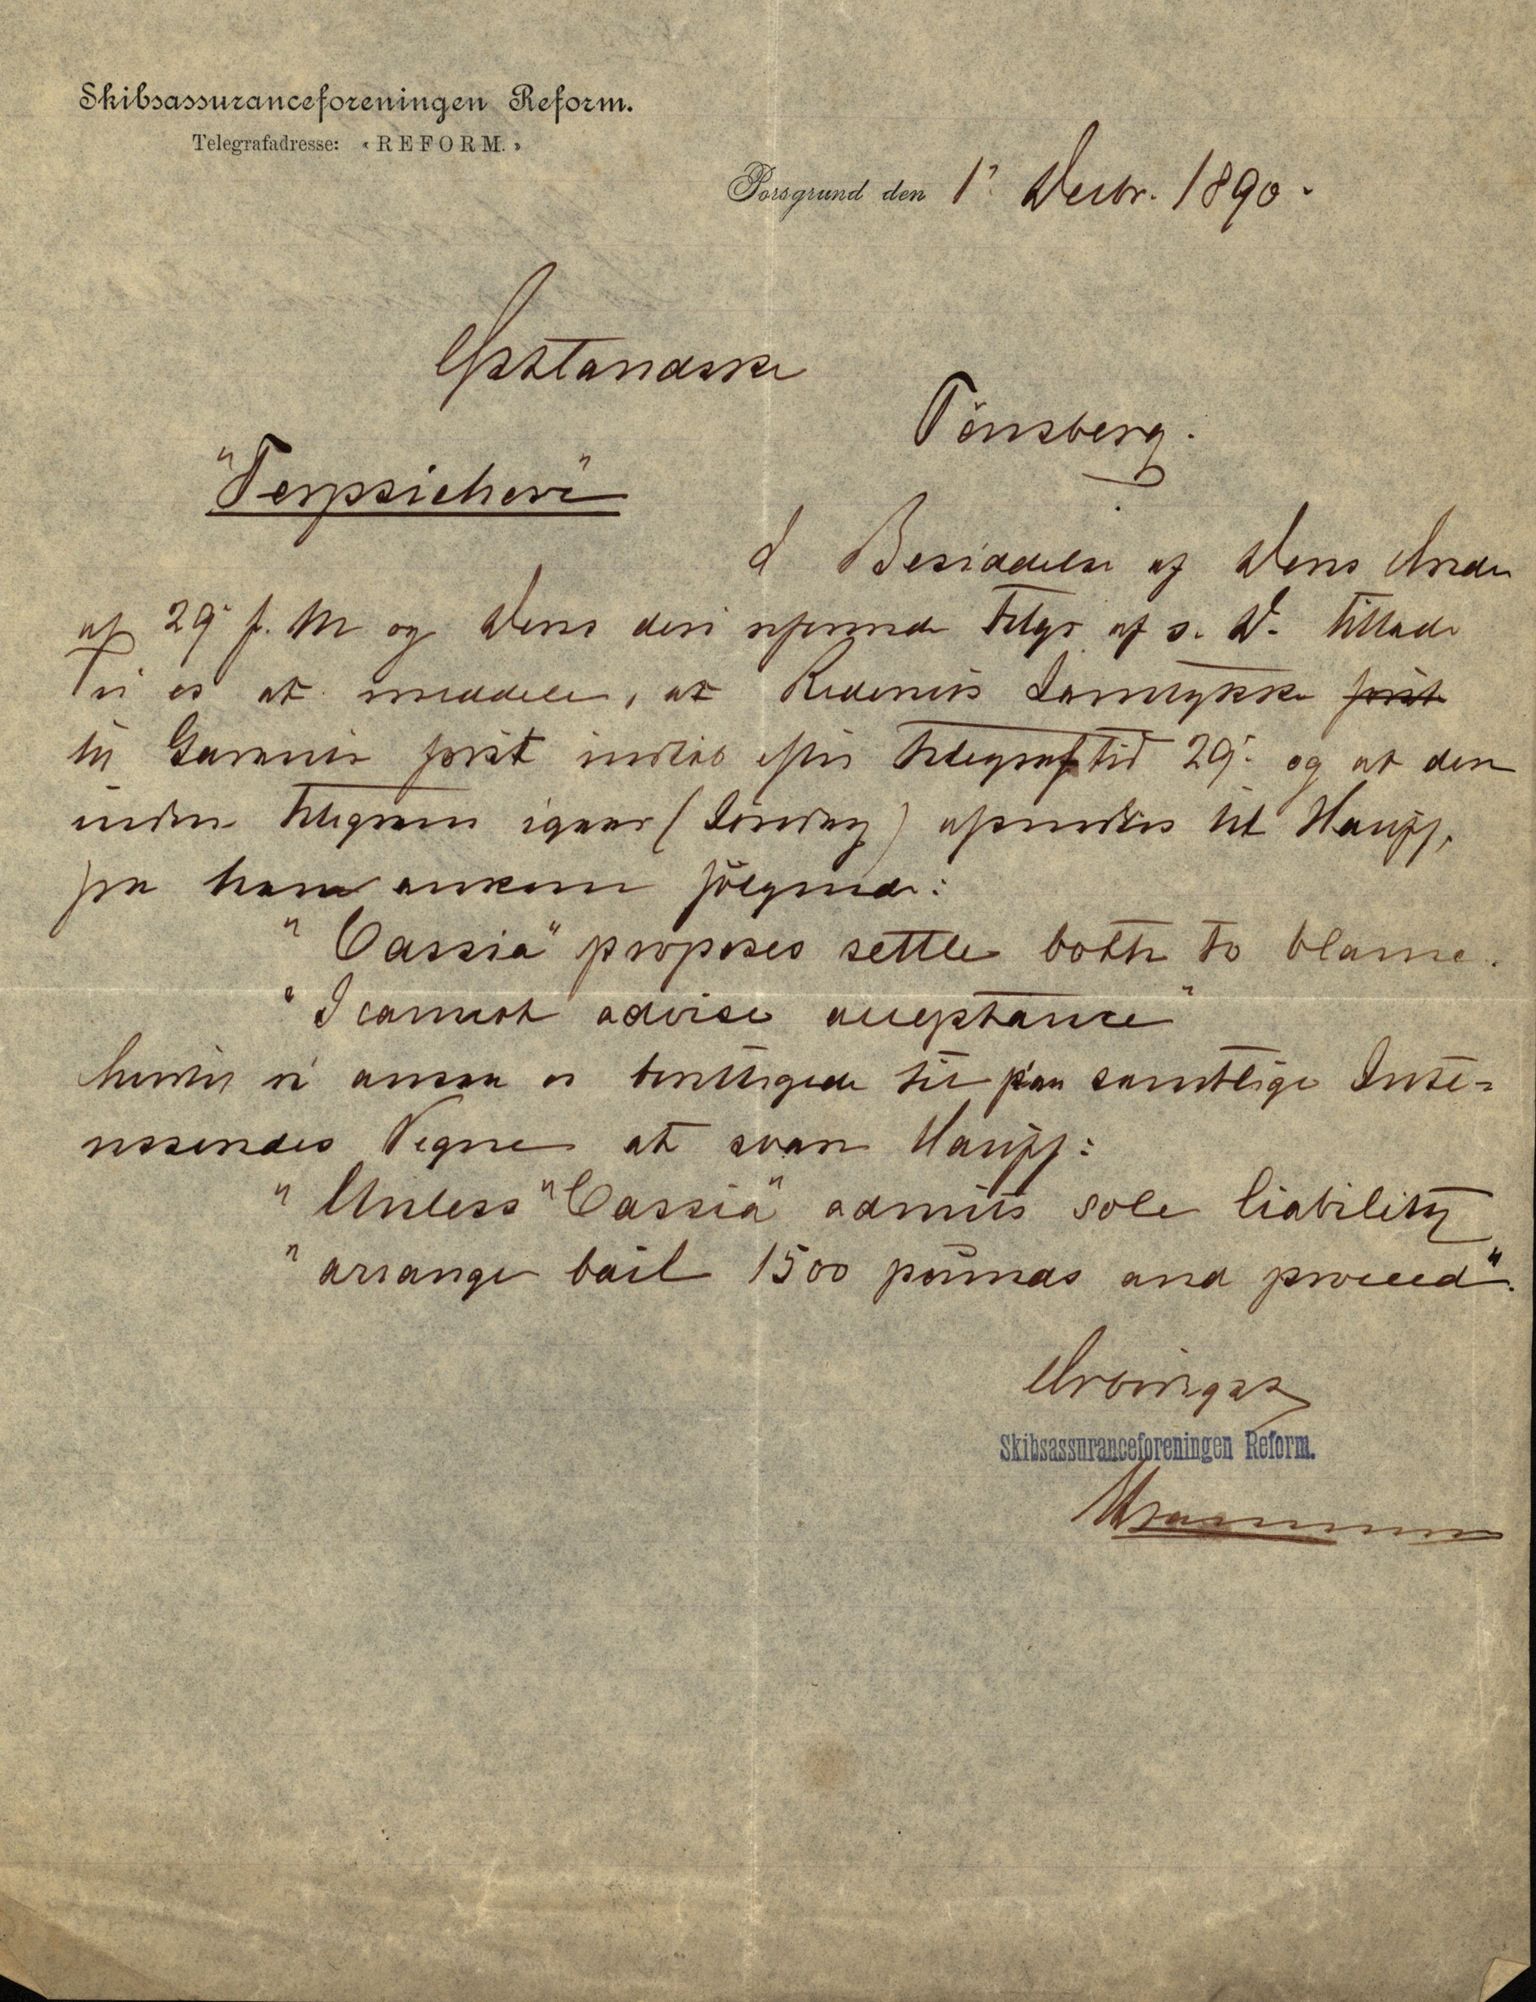 Skibsassuranceforeningen Reform.
Telegrafadresse: «REFORM.»
Porsgrund den 1' Decbr. 1890.
Østlandske
Tönsberg.
"Terpsichore"
I Besiddelse af Deres Ærede
af 29' f. M og Deres deri refererede Telgr. af s. D. tillade
vi os at meddele, at Rederiets Samtykke først
til Garanti først indløb efter Telegraftid 29' og at der
inden Telegram igaar (Søndag) afsendtes til Haupp,
fra ham ankom fölgende:
" Cassia" proposes settle both to blame.
" I cannot advise acceptance"
hvorfor vi ansaa os berettigede til paa samtlige Inte-
ressendes Vegne at svare Haupp:
" Unless "Cassia" admits sole liability
" arrange bail 1500 pounds and proceed".
Ærbödigst
Skibsassuranceforeningen Reform.